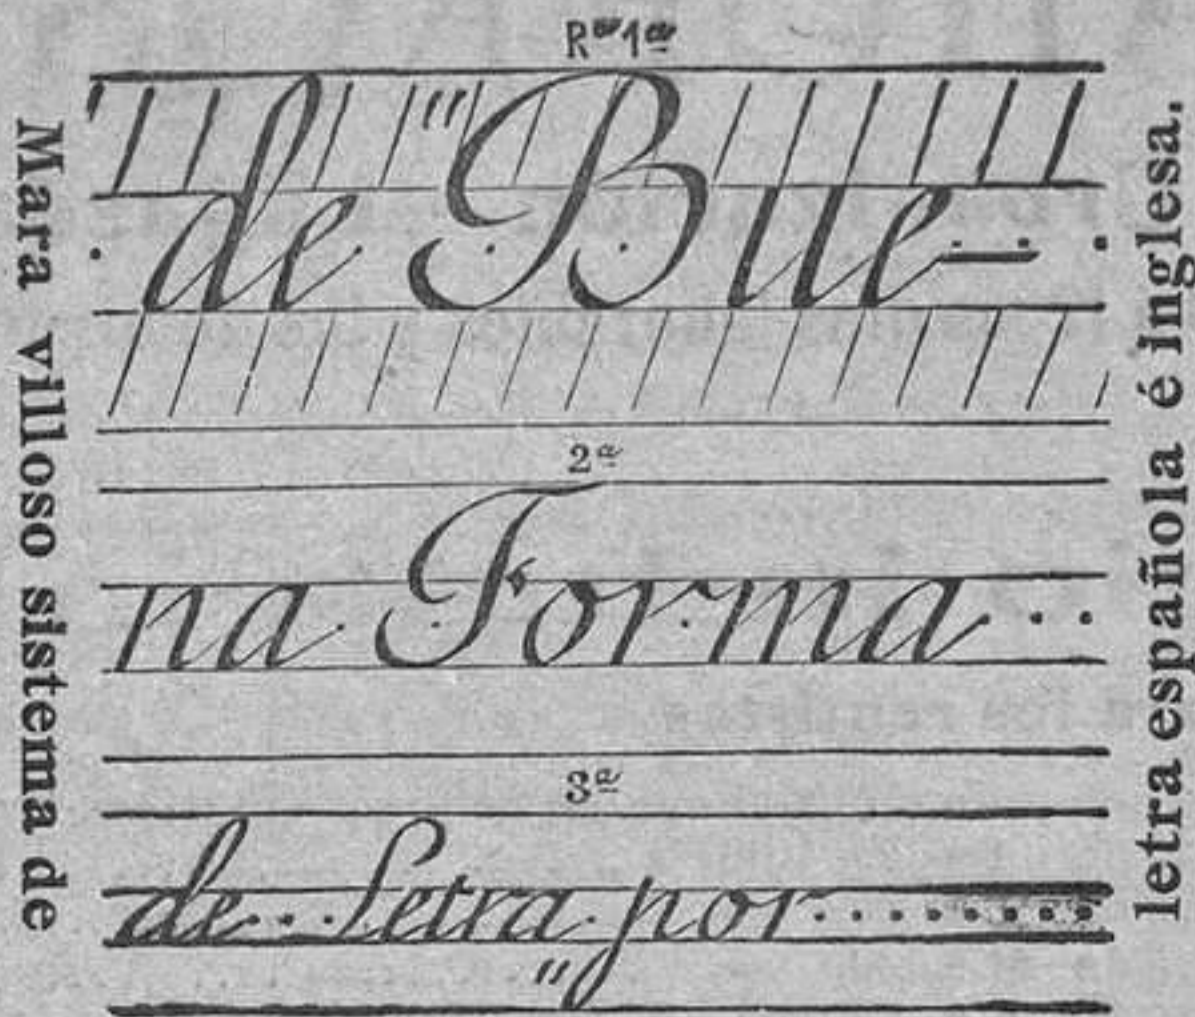 Mara villoso sistema de
Rᵃˢ 1ᵃˢ
de "Bue-
2ª
na Forma
3ª
de Letra por
"
letra española é inglesa.